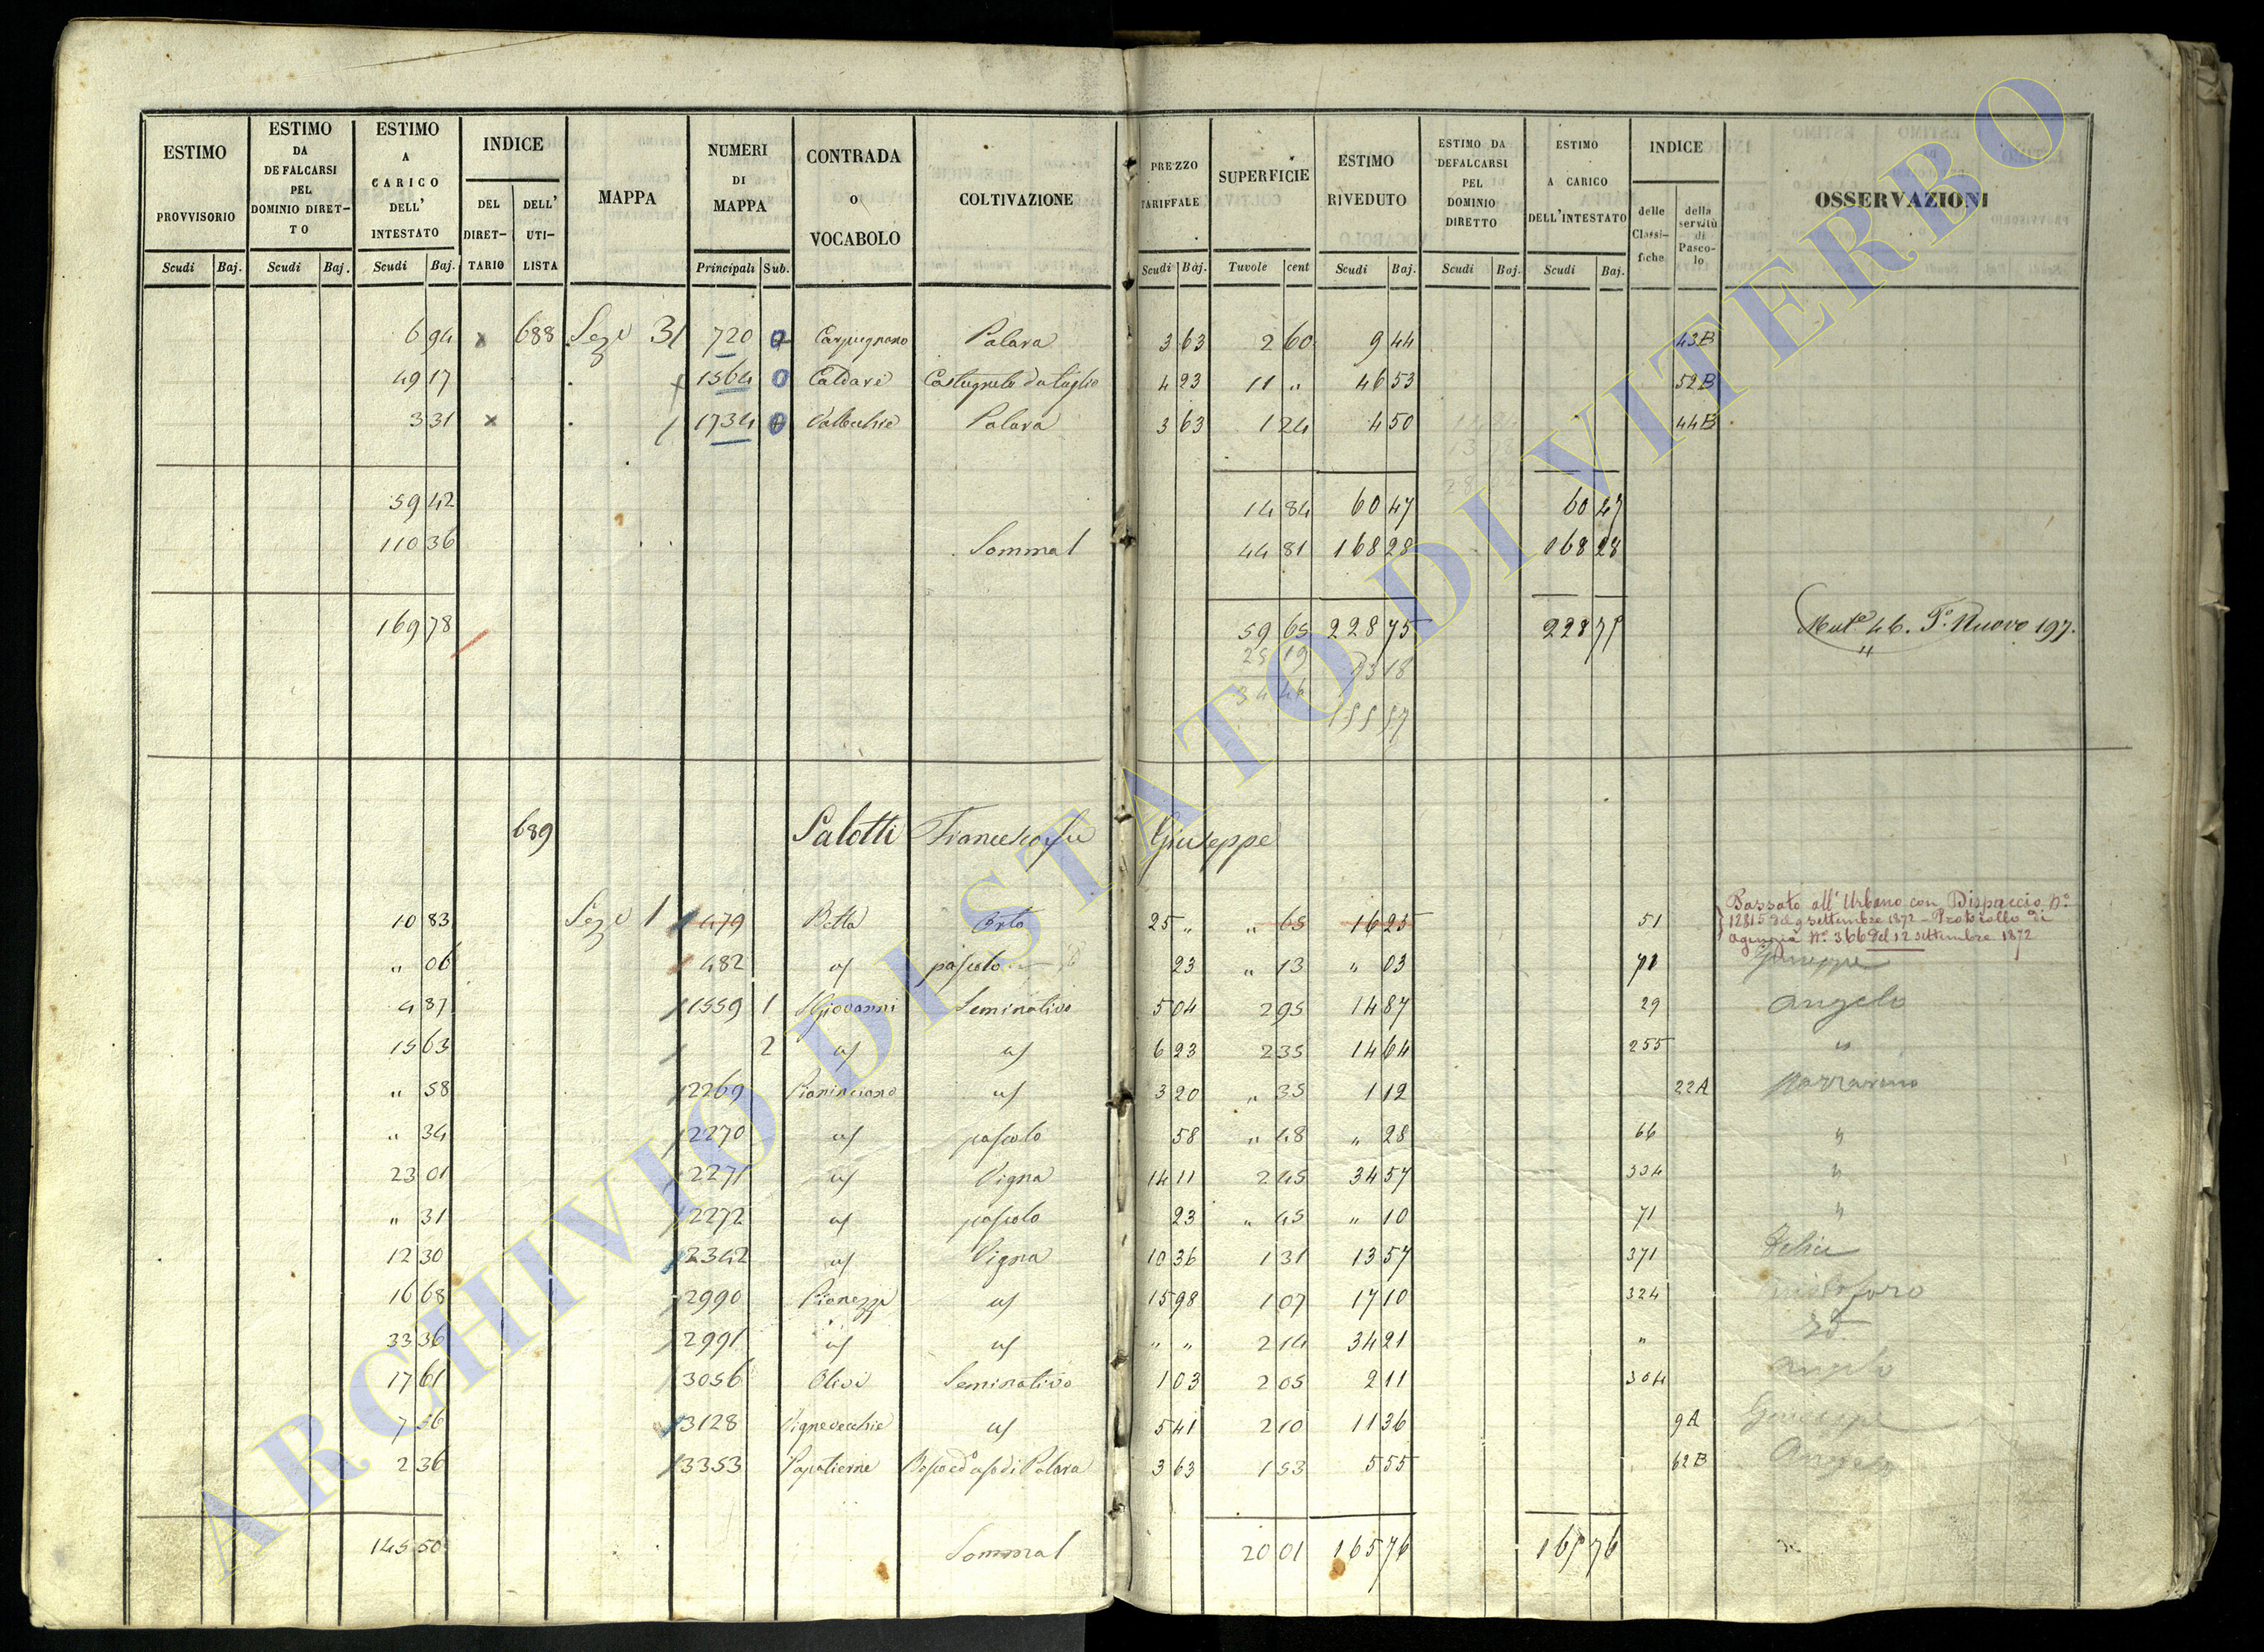 ESTIMO PROVVISORIO Scudi Baj.
ESTIMO DA DEFALCARSI PEL DOMINIO DIRETTO Scudi Baj.
ESTIMO A CARICO DELL' INTESTATO Scudi Baj.
INDICE DEL DIRETTARIO DELL' UTILISTA
MAPPA
NUMERI DI MAPPA Principali Sub.
CONTRADA O VOCABOLO
COLTIVAZIONE
PREZZO TARIFFALE Scudi Baj.
SUPERFICIE Tavole cent
ESTIMO RIVEDUTO Scudi Baj.
ESTIMO DA DEFALCARSI PEL DOMINIO DIRETTO Scudi Baj.
ESTIMO A CARICO DELL'INTESTATO Scudi Baj.
INDICE delle Classifiche della servitù di Pascolo
OSSERVAZIONI
6 94 x 688 Sez. 31 720 0 Carpugnano Palara 3 63 2 60 9 44 43B
49 17 1564 0 Caldare Castagneto da taglio 4 23 11 " 46 53 52B
3 31 x 1734 0 Vallecchie Palara 3 63 1 24 4 50 44B
59 42 14 84 60 47 60 47
110 36 Somma 44 81 168 28 168 28
169 78 59 65 228 75 228 75 Mut. 46. F.o Nuovo 197.
25 19 73 18
34 46
155 57
689 Salotti Francesco fu Giuseppe
10 83 Sez. 1 479 Betta Orto 25 " " 65 16 25 51 Passato all'Urbano con Dispaccio N.o
12815 del 9 settembre 1872 - Protocollo di
agenzia N.o 366 del 12 settembre 1872
" 06 482 " pascolo 23 " 13 " 03 71 Giuseppe
4 87 1559 1 S Giovanni Seminativo 5 04 2 95 14 87 29 Angelo
15 63 2 " " 6 23 2 35 14 64 255 "
" 58 2269 Pianinciano " 3 20 " 35 1 12 22A Nazzareno
" 34 2270 " pascolo 58 " 48 " 28 66 "
23 01 2271 " Vigna 14 11 2 45 34 57 334 "
" 31 2272 " pascolo 23 " 45 " 10 71 "
12 30 2342 " Vigna 10 36 1 31 13 57 371 Felice
16 68 2990 Pianezze " 15 98 1 07 17 10 324
33 36 2991 " " " " 2 14 34 21 " Id.
17 61 3056 Olivi Seminativo 1 03 2 05 2 11 304 Angelo
7 56 3128 Vignevecchie " 5 41 2 10 11 36 9A Giuseppe
2 36 3353 Papatierne Bosco ed uso di Palara 3 63 1 53 5 55 62B Angelo
145 50 Somma 20 01 165 76 165 76
ARCHIVIO DI STATO DI VITERBO